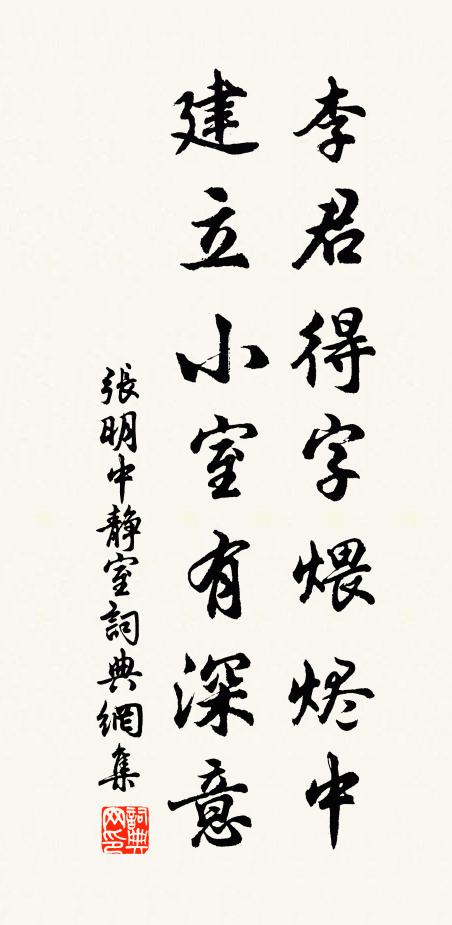 李君得字煨烬中
建立小室有深意
張明中靜室詞典網集
詞典网印